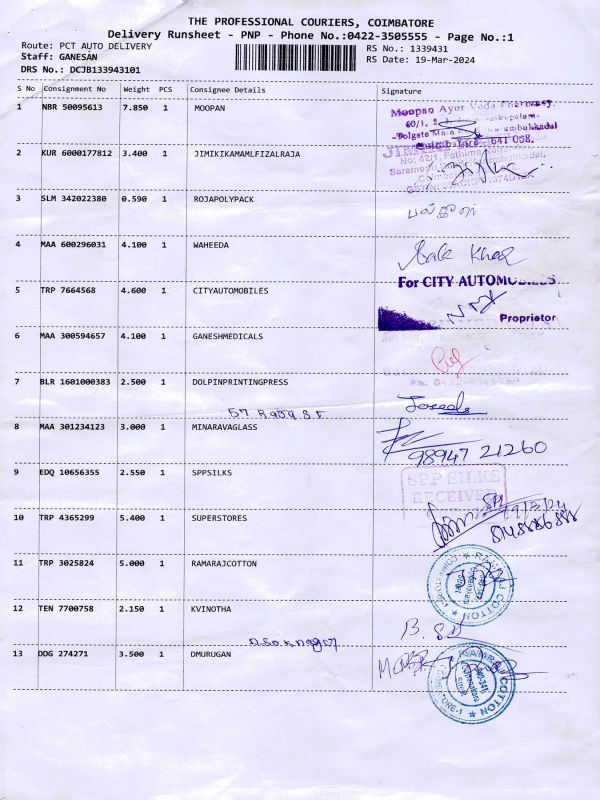 THE PROFESSIONAL COURIERS, COIMBATORE
Delivery Runsheet - PNP - Phone No.:0422-3505555 - Page No.:1
Route: PCT AUTO DELIVERY
RS No.: 1339431
Staff: GANESAN
RS Date: 19-Mar-2024
DRS No.: DCJB133943101
S No Consignment No Weight PCS Consignee Details Signature
1 NBR 50095613 7.850 1 MOOPAN
Moopan Ayur
641 008.
2 KUR 6000177812 3.400 1 JIMIKIKAMAMLFIZALRAJA
3 SLM 342022380 0.590 1 ROJAPOLYPACK
4 MAA 600296031 4.100 1 WAHEEDA
For CITY AUTOMOBILES
5 TRP 7664568 4.600 1 CITYAUTOMOBILES
Proprietor
6 MAA 300594657 4.100 1 GANESHMEDICALS
7 BLR 1601000383 2.500 1 DOLPINPRINTINGPRESS
57 Raja St
8 MAA 301234123 3.000 1 MINARAVAGLASS
98947 21260
9 EDQ 10656355 2.550 1 SPPSILKS
SPP SILKS
RECEIVED
10 TRP 4365299 5.400 1 SUPERSTORES
11 TRP 3025824 5.000 1 RAMARAJCOTTON
12 TEN 7700758 2.150 1 KVINOTHA
13 DDG 274271 3.500 1 DMURUGAN
COTTON